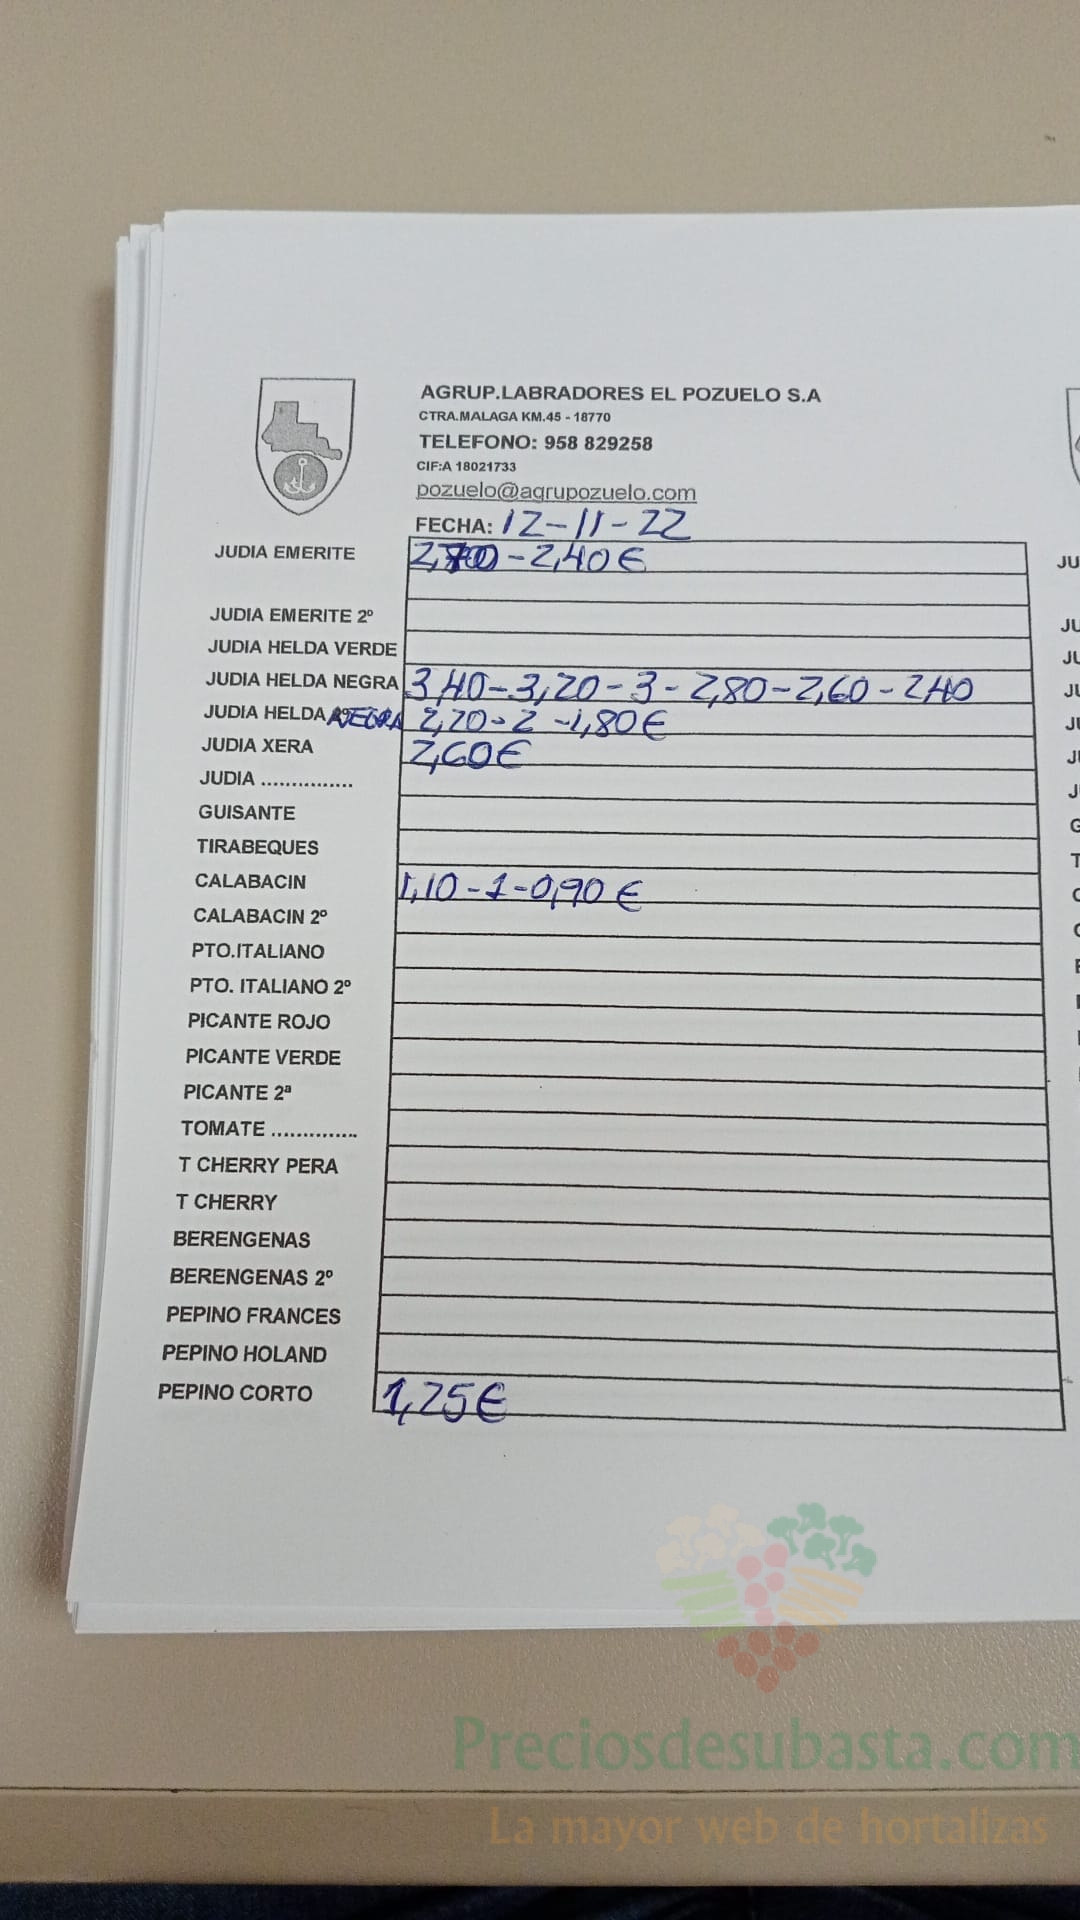 AGRUP.LABRADORES EL POZUELO S.A
CTRA.MALAGA KM.45 - 18770
TELEFONO: 958 829258
CIF:A 18021733
pozuelo@agrupozuelo.com
FECHA: 12-11-22
JUDIA EMERITE - 2,40€
JUDIA EMERITE 2º
JUDIA HELDA VERDE
JUDIA HELDA NEGRA 3,40-3,20-3-2,80-2,60-2,40
JUDIA HELDA NEGRA 2,20-2-1,80€
JUDIA XERA 2,60€
JUDIA ...............
GUISANTE
TIRABEQUES
CALABACIN 1,10-1-0,90 €
CALABACIN 2º
PTO.ITALIANO
PTO. ITALIANO 2º
PICANTE ROJO
PICANTE VERDE
PICANTE 2ª
TOMATE ..............
T CHERRY PERA
T CHERRY
BERENGENAS
BERENGENAS 2º
PEPINO FRANCES
PEPINO HOLAND
PEPINO CORTO 1,25€
JU
JU
JU
JU
JU
JU
J
G
T
Preciosdesubasta.com
La mayor web de hortalizas